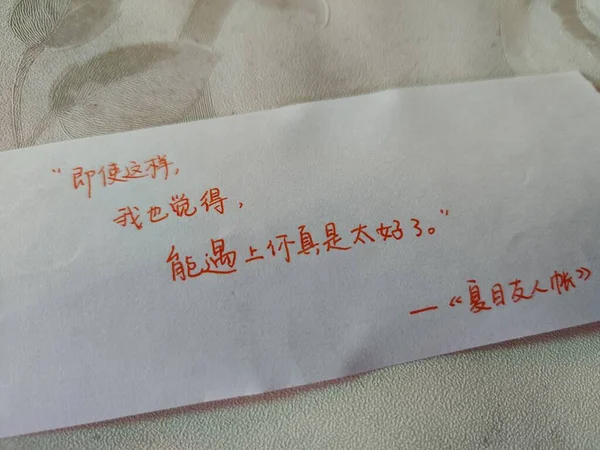 “即使这样，
我也觉得，
能遇上你真是太好了。”
—《夏目友人帐》